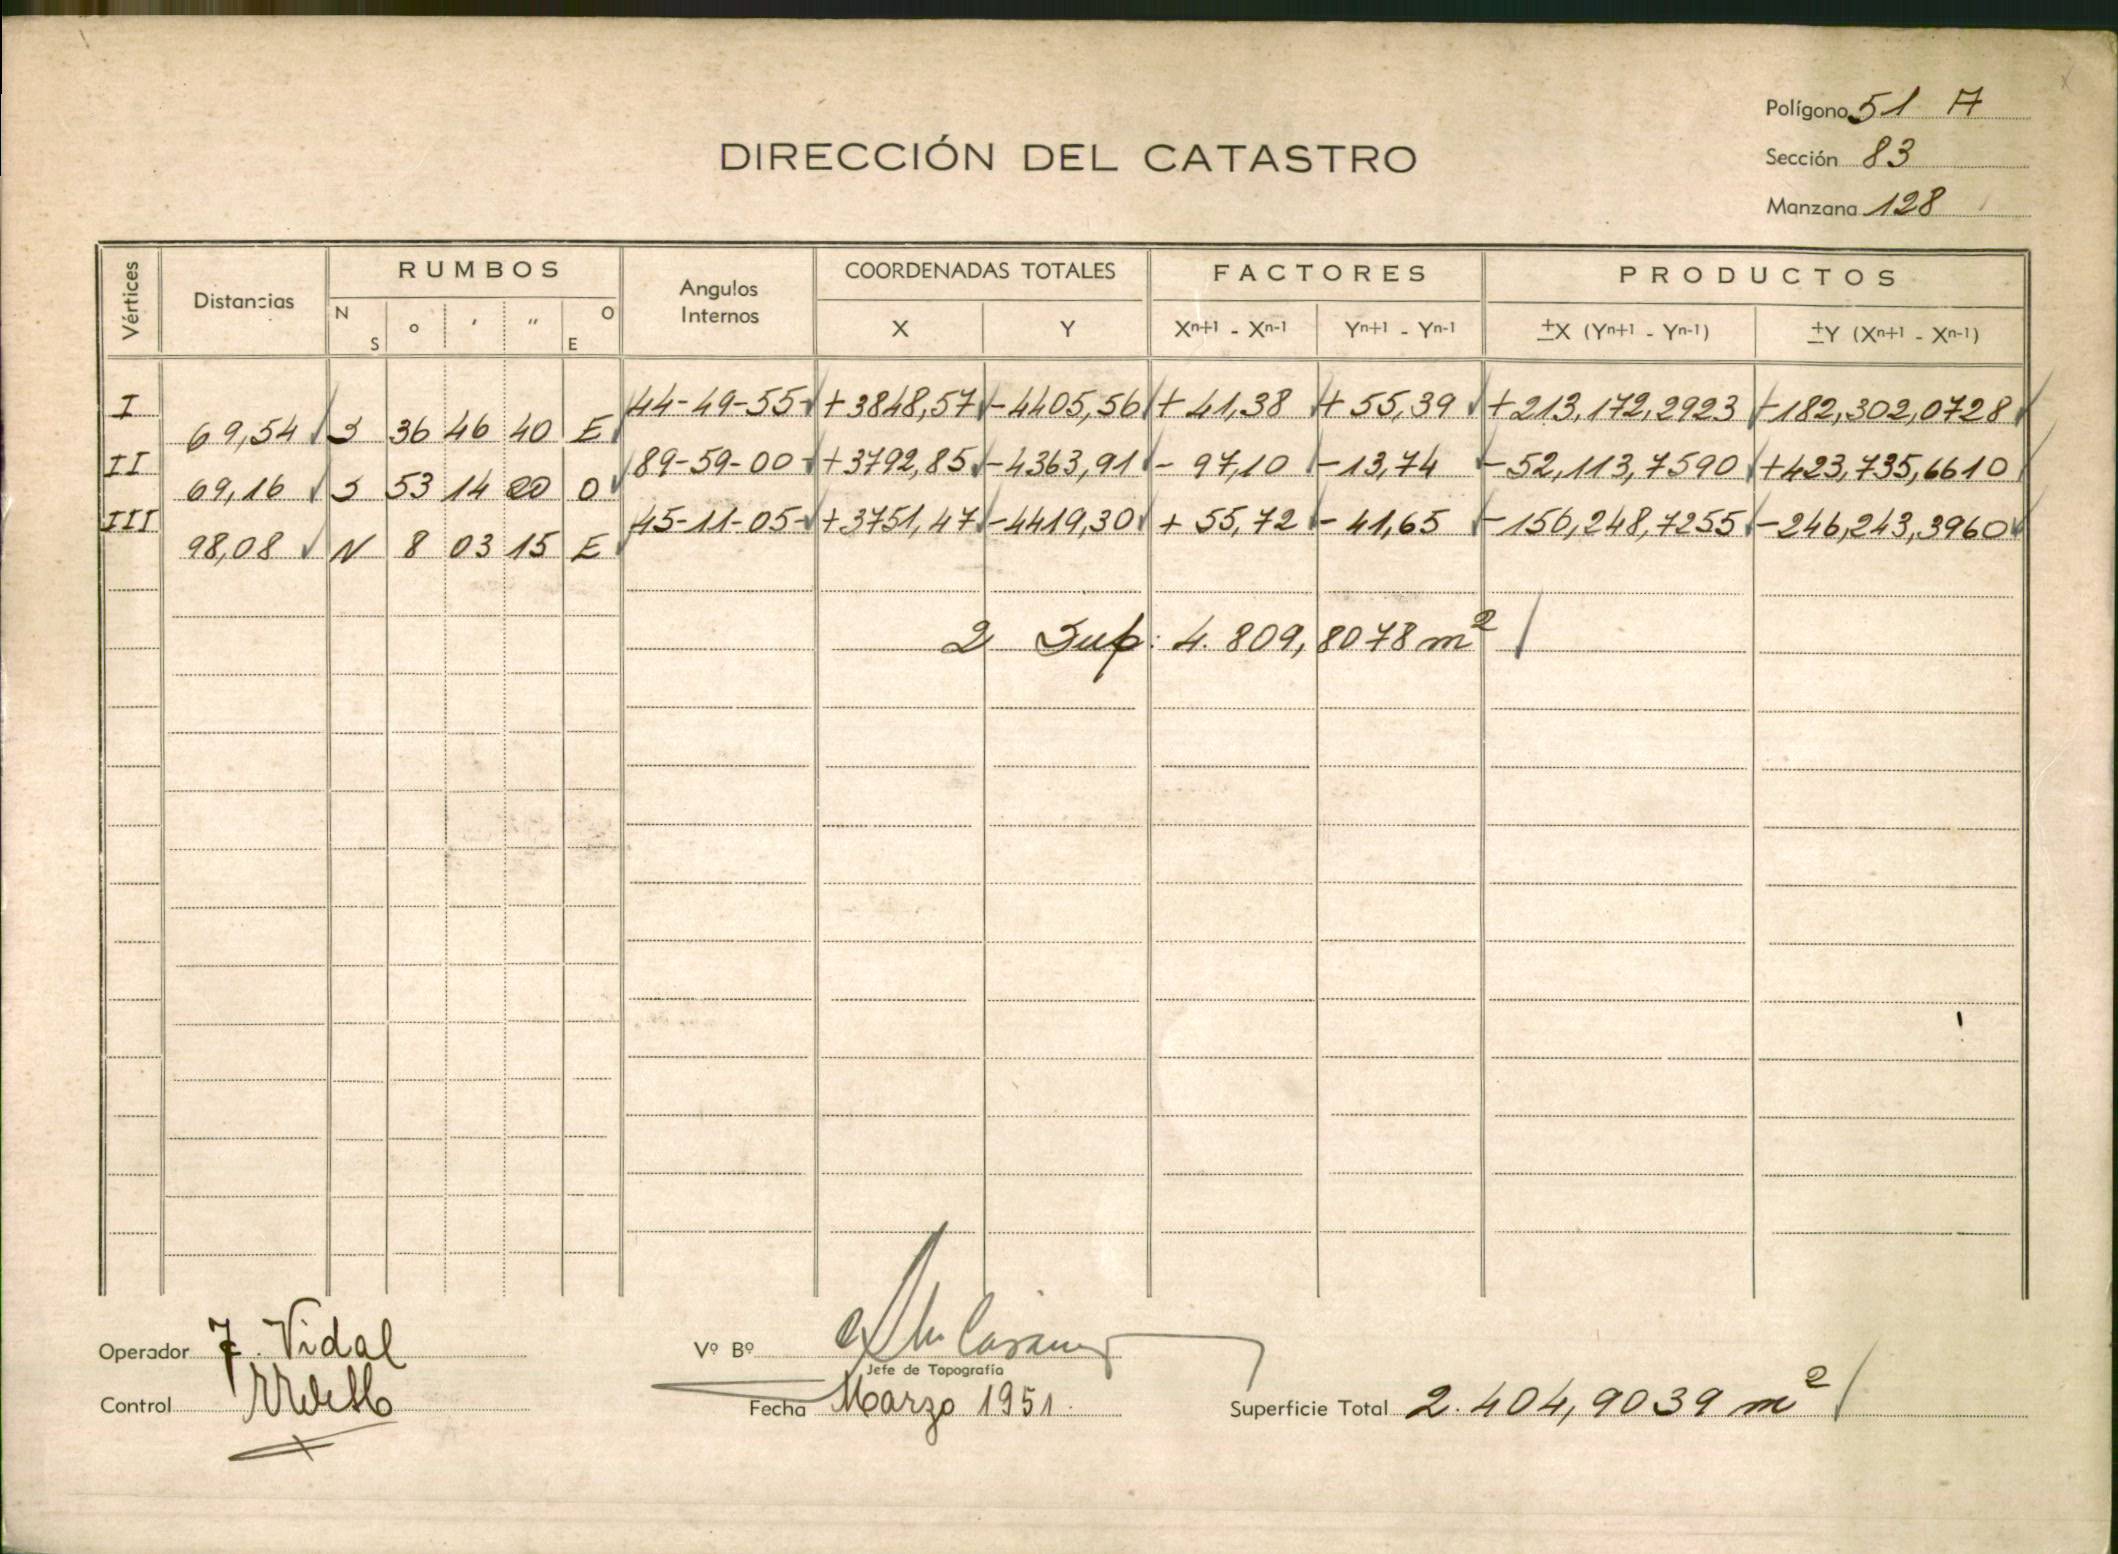 Polígono 51 A
DIRECCIÓN DEL CATASTRO
Sección 83
Manzana 128
Vértices Distancias RUMBOS Angulos Internos COORDENADAS TOTALES FACTORES PRODUCTOS
N S o ' " O E X Y Xn+1 - Xn-1 Yn+1 - Yn-1 ±X (Yn+1 - Yn-1) ±Y (Xn+1 - Xn-1)
I 44-49-55 +3848,57 -4405,56 + 41,38 + 55,39 +213,172,2923 -182,302,0728
69,54 S 36 46 40 E
II 89-59-00 +3792,85 -4363,91 - 97,10 -13,74 -52,113,7590 +423,735,6610
69,16 S 53 14 20 O
III 45-11-05 +3751,47 -4419,30 + 55,72 - 41,65 -156,248,7255 -246,243,3960
98,08 N 8 03 15 E
2 Sup: 4.809,8078 m²
Operador F. Vidal Vº Bº
Jefe de Topografía
Control Fecha Marzo 1951. Superficie Total 2.404,9039 m²